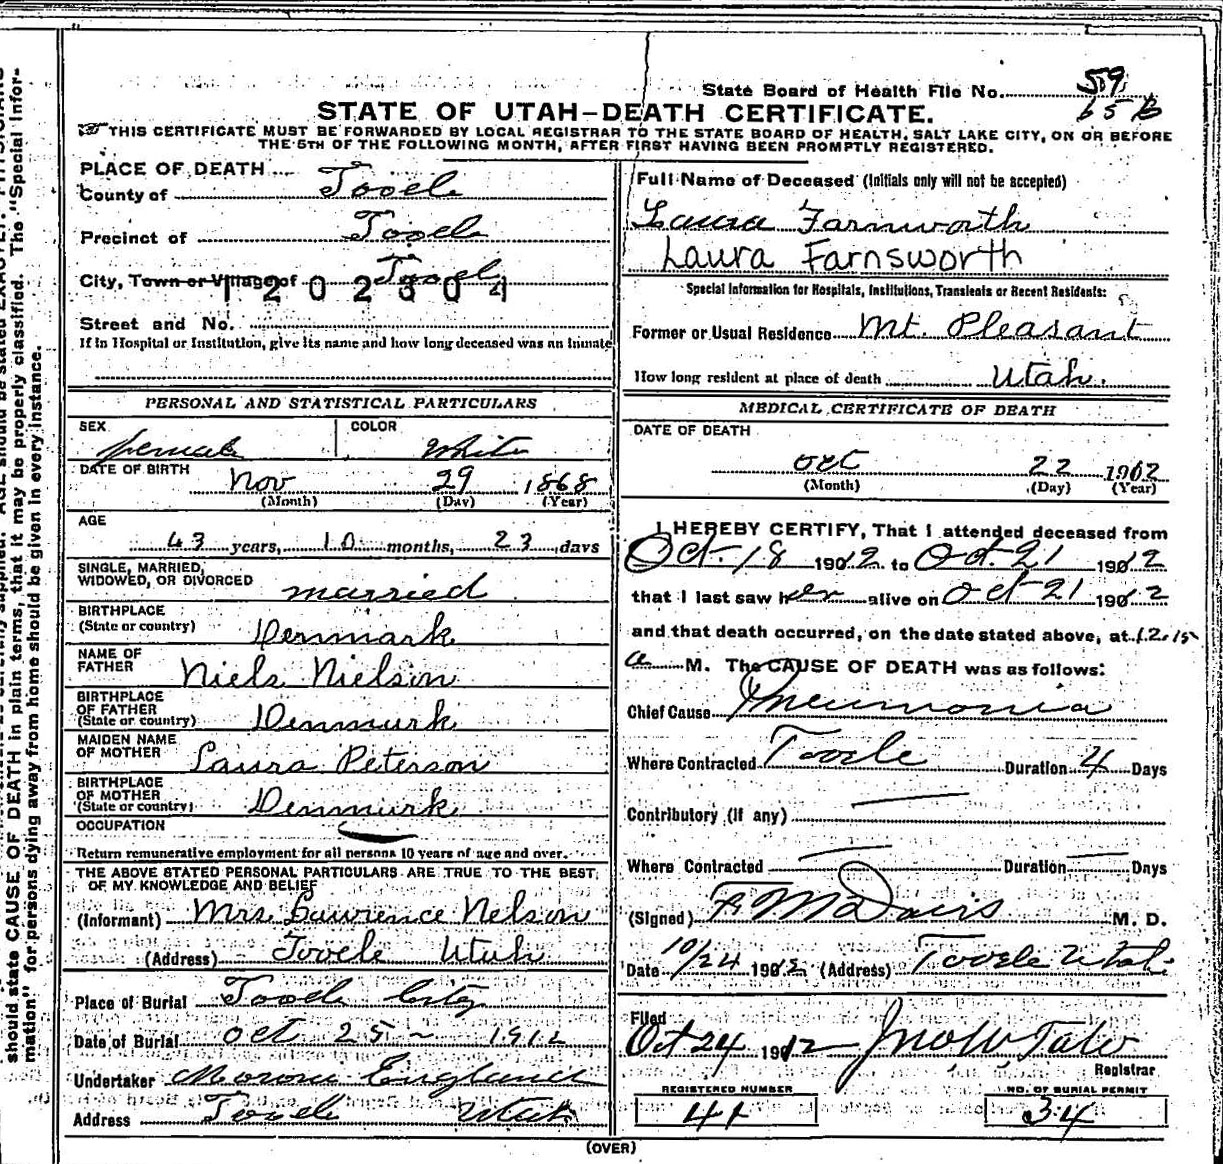 State Board of Health File No. 59
65 B
STATE OF UTAH–DEATH CERTIFICATE.
THIS CERTIFICATE MUST BE FORWARDED BY LOCAL REGISTRAR TO THE STATE BOARD OF HEALTH, SALT LAKE CITY, ON OR BEFORE
THE 5TH OF THE FOLLOWING MONTH, AFTER FIRST HAVING BEEN PROMPTLY REGISTERED.
PLACE OF DEATH
County of Tooele
Precinct of Tooele
City, Town or Village of Tooele
1202304
Street and No.
If in Hospital or Institution, give its name and how long deceased was an inmate
PERSONAL AND STATISTICAL PARTICULARS
SEX female COLOR White
DATE OF BIRTH Nov 29 1868
(Month) (Day) (Year)
AGE
43 years, 10 months, 23 days
SINGLE, MARRIED,
WIDOWED, OR DIVORCED married
BIRTHPLACE
(State or country) Denmark
NAME OF
FATHER Niels Nielson
BIRTHPLACE
OF FATHER
(State or country) Denmark
MAIDEN NAME
OF MOTHER Laura Peterson
BIRTHPLACE
OF MOTHER
(State or country) Denmark
OCCUPATION
Return remunerative employment for all persons 10 years of age and over.
THE ABOVE STATED PERSONAL PARTICULARS ARE TRUE TO THE BEST
OF MY KNOWLEDGE AND BELIEF
(Informant) Mrs Lawrence Nelson
(Address) Tooele Utah
Place of Burial Tooele City
Date of Burial Oct 25 – 1912
Undertaker Moroni England
Address Tooele Utah
Full Name of Deceased (Initials only will not be accepted)
Laura Farnworth
Laura Farnsworth
Special Information for Hospitals, Institutions, Transients or Recent Residents:
Former or Usual Residence Mt. Pleasant
How long resident at place of death Utah.
MEDICAL CERTIFICATE OF DEATH
DATE OF DEATH
Oct 22 1912
(Month) (Day) (Year)
I HEREBY CERTIFY, That I attended deceased from
Oct. 18 1912 to Oct. 21 1912
that I last saw her alive on Oct 21 1912
and that death occurred, on the date stated above, at 12.15
a M. The CAUSE OF DEATH was as follows:
Chief Cause Pneumonia
Where Contracted Tooele Duration 4 Days
Contributory (if any)
Where Contracted Duration Days
(Signed) F M Davis M. D.
Date 10/24 1912 (Address) Tooele Utah
Filed
Oct 24 1912 Jno W Tate
Registrar
REGISTERED NUMBER
44
NO. OF BURIAL PERMIT
34
(OVER)
should state CAUSE OF DEATH in plain terms, that it may be properly classified. The "Special Infor-
mation" for persons dying away from home should be given in every instance.